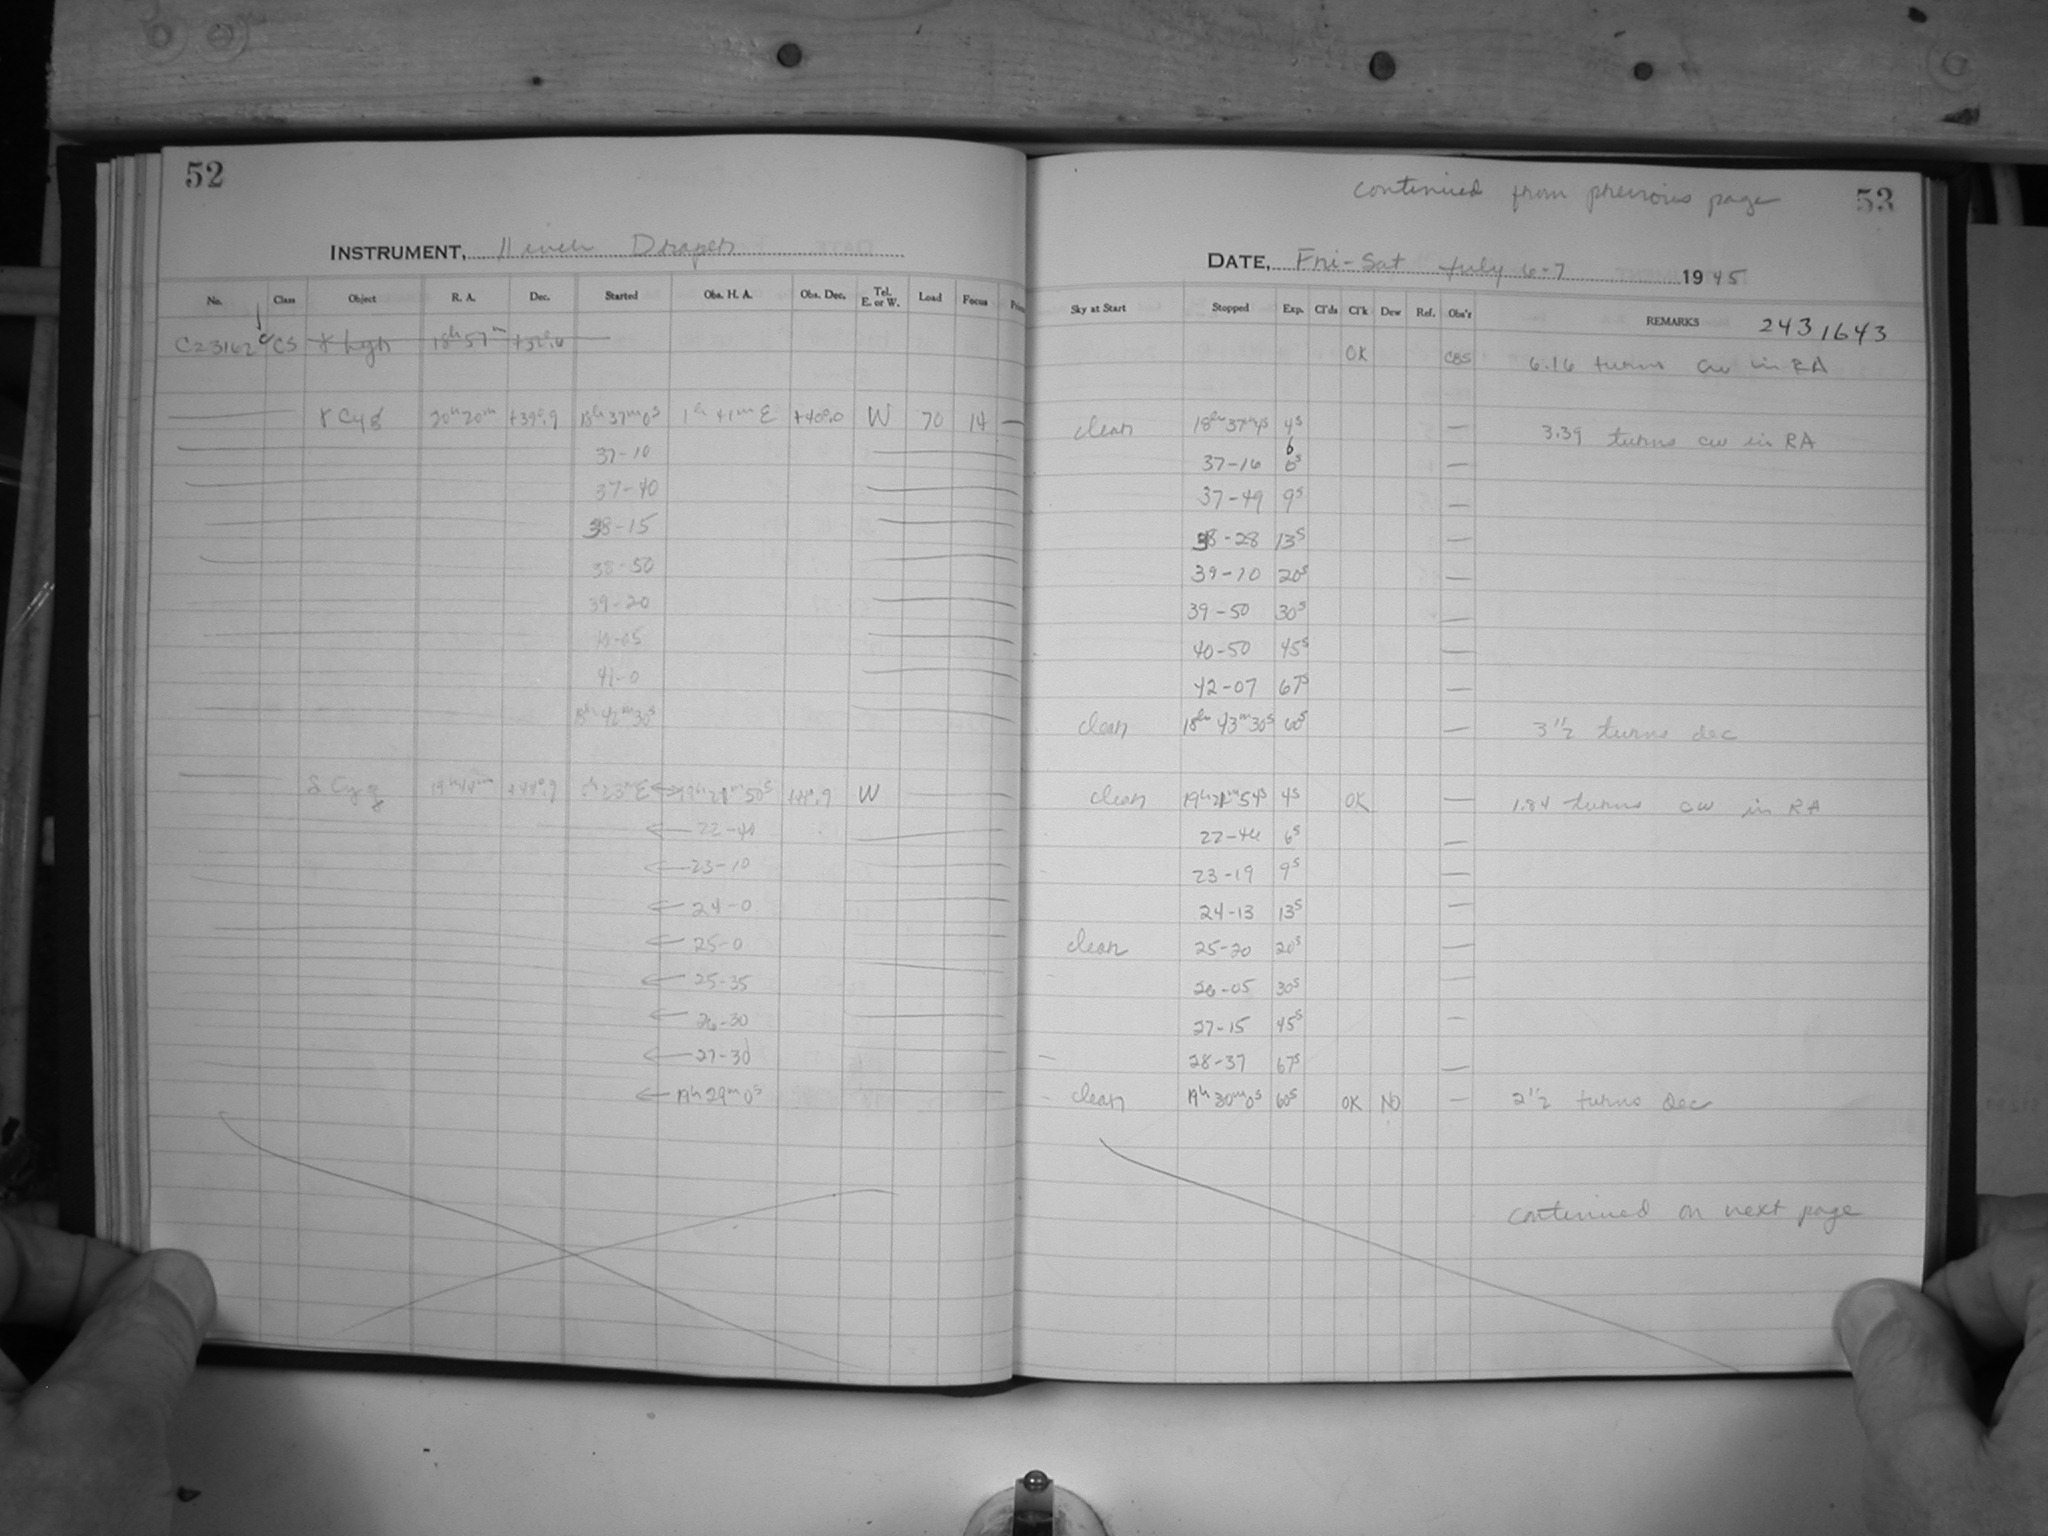 52
INSTRUMENT, 11 inch Draper
No. Class Object R. A. Dec. Started Obs. H. A. Obs. Dec. Tel. E. or W. Load Focus
C23162 CS γ Lyr 18h 57m +32°.6
γ Cyg 20h 20m +39°.9 18h 37m 0s 1h 41m E +40°.0 W 70 14 —
37-10
37-40
38-15
38-50
39-20
40-05
41-0
18h 42m 30s
δ Cyg 19h 44m +44°.9 0h 23m E 19h 21m 50s +44°.9 W
← 22-40
← 23-10
← 24-0
← 25-0
← 25-35
← 26-30
← 27-30
← 19h 29m 0s
continued from previous page 53
DATE, Fri-Sat July 6-7 1945
Sky at Start Stopped Exp. Cl'ds Cl'k Dew Ref. Obs'r REMARKS 2431643
OK CBS 6.16 turns cw in RA
clear 18h 37m 4s 4s — 3.39 turns cw in RA
37-16 6s —
37-49 9s —
38-28 13s —
39-10 20s —
39-50 30s —
40-50 45s —
42-07 67s —
clear 18h 43m 30s 60s — 3 1/2 turns dec
clear 19h 21m 54s 4s OK — 1.84 turns cw in RA
22-46 6s —
23-19 9s —
24-13 13s —
clear 25-20 20s —
26-05 30s —
27-15 45s —
28-37 67s —
clear 19h 30m 0s 60s OK NO — 2 1/2 turns dec
continued on next page